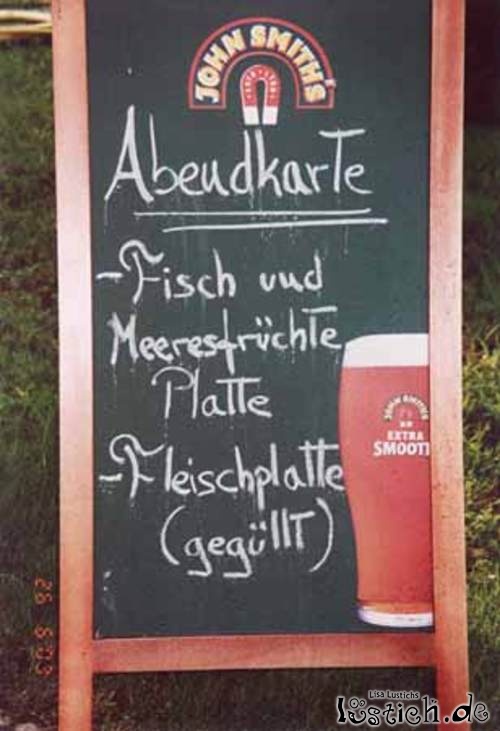 JOHN SMITH'S
Abendkarte
- Fisch und
Meeresfrüchte
Platte
- Fleischplatte
(gegüllt)
JOHN SMITH'S
EXTRA
SMOOT
26 5 03
Lisa Lustichs
lüstich.de